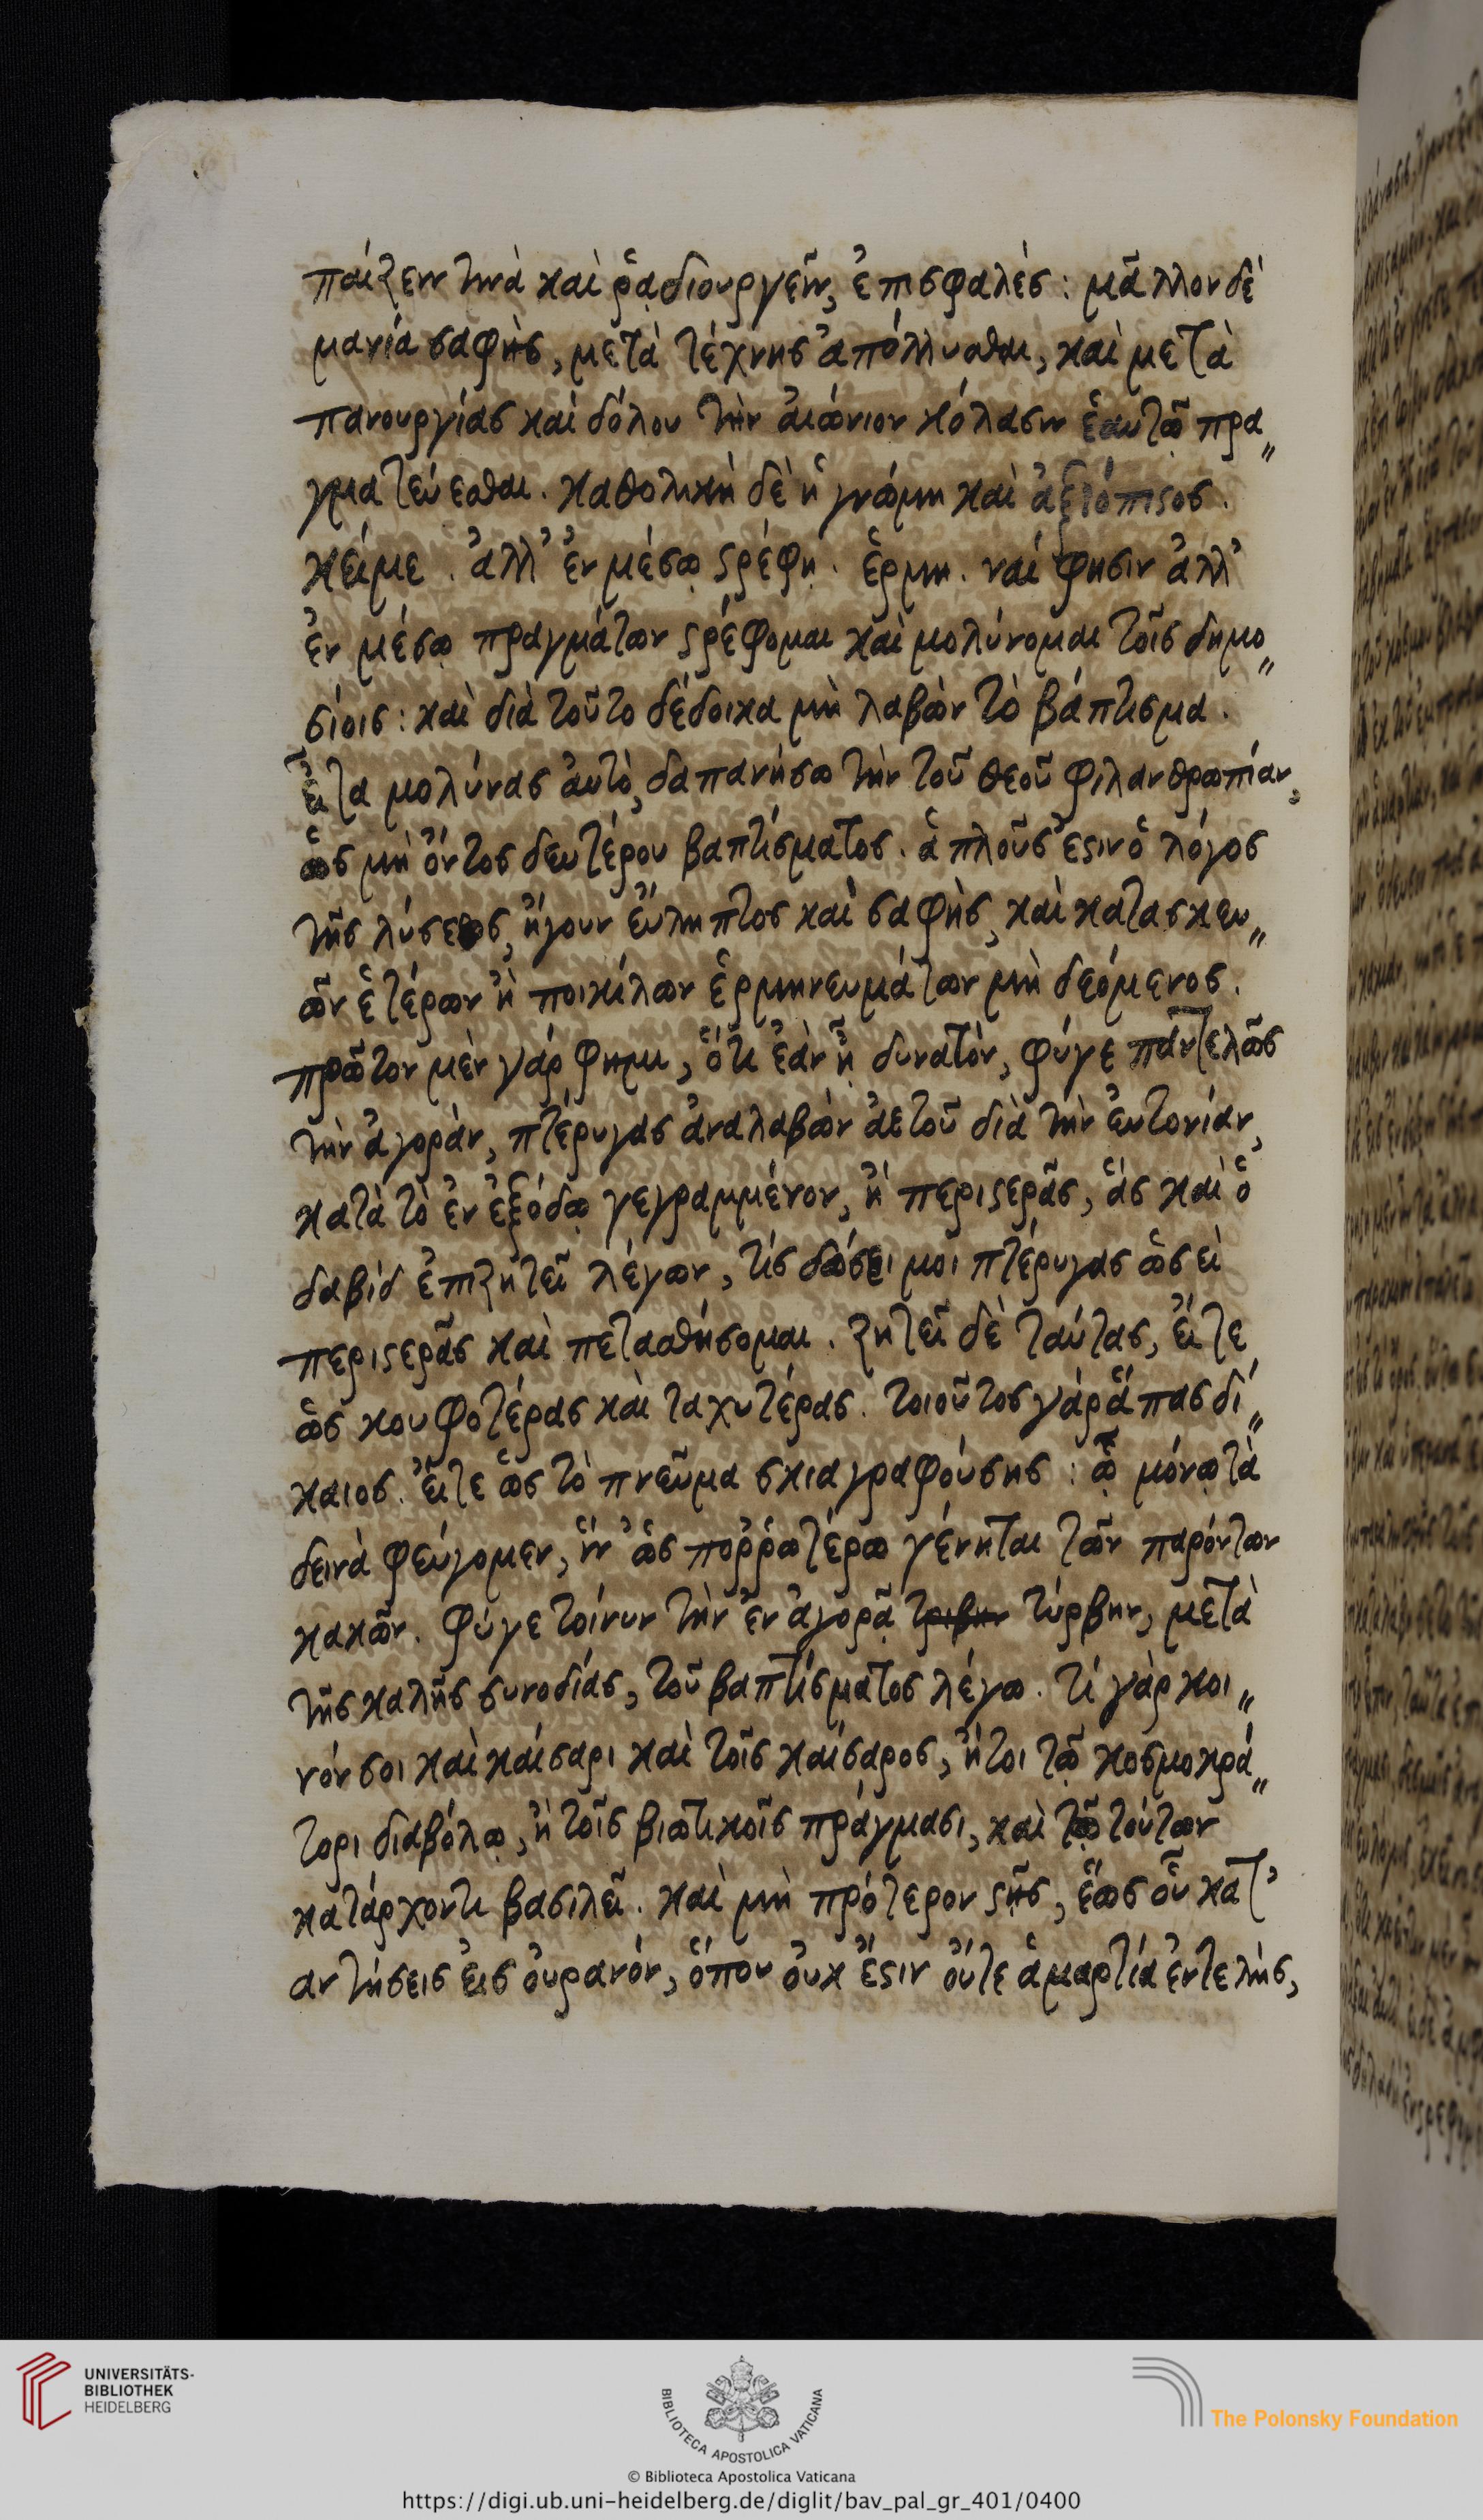 παίζειν τινὰ καὶ ῥᾳδιουργεῖν, ἐπισφαλές: μᾶλλον δὲ
μανία σαφὴς, μετὰ τέχνης ἀπόλλυσθαι, καὶ μετὰ
πανουργίας καὶ δόλου τὴν αἰώνιον κόλασιν ἑαυτῷ πρα„
γματεύεσθαι. καθολικὴ δὲ ἡ γνώμη καὶ ἀξιόπιστος.
κείμε. ἀλλ' ἐν μέσῳ στρέφῃ. ἑρμη. ναί φησιν ἀλλ'
ἐν μέσῳ πραγμάτων στρέφομαι καὶ μολύνομαι τοῖς δημο„
σίοις: καὶ διὰ τοῦτο δέδοικα μὴ λαβὼν τὸ βάπτισμα.
εἶτα μολύνας αὐτὸ, δαπανήσω τὴν τοῦ θεοῦ φιλανθρωπίαν,
ὡς μὴ ὄντος δευτέρου βαπτίσματος. ἁπλοῦς ἐστιν ὁ λόγος
τῆς λύσεως, ἤγουν εὔληπτος καὶ σαφὴς, καὶ κατασκευ„
ῶν ἑτέρων ἢ ποικίλων ἑρμηνευμάτων μὴ δεόμενος.
πρῶτον μὲν γάρ φημι, ὅτι ἐὰν ᾖ δυνατὸν, φύγε παντελῶς
τὴν ἀγορὰν, πτέρυγας ἀναλαβὼν ἀετοῦ διὰ τὴν εὐτονίαν,
κατὰ τὸ ἐν ἐξόδῳ γεγραμμένον, ἢ περιστερᾶς, ἃς καὶ ὁ
δαβίδ ἐπιζητεῖ λέγων, τίς δώσει μοι πτέρυγας ὡς εἰ
περιστερᾶς καὶ πετασθήσομαι. ζητεῖ δὲ ταύτας, εἴτε
ὡς κουφοτέρας καὶ ταχυτέρας. τοιοῦτος γάρ ἅπας δί„
καιος. εἴτε ὡς τὸ πνεῦμα σκιαγραφούσης: ᾧ μόνῳ τὰ
δεινὰ φεύγομεν, ἵν' ὡς πορρωτέρω γένηται τῶν παρόντων
κακῶν. φύγε τοίνυν τὴν ἐν ἀγορᾷ τριβην τύρβην, μετὰ
τῆς καλῆς συνοδίας, τοῦ βαπτίσματος λέγω. τί γὰρ κοι„
νόν σοι καὶ καίσαρι καὶ τοῖς καίσαρος, ἤτοι τῷ κοσμοκρά„
τορι διαβόλῳ, ἢ τοῖς βιωτικοῖς πράγμασι, καὶ τῷ τούτων
κατάρχοντι βασιλεῖ. καὶ μὴ πρότερον στῇς, ἕως οὗ κατ'
αντήσεις εἰς οὐρανόν, ὅπου οὐκ ἔστιν οὔτε ἁμαρτία ἐντελής,
UNIVERSITÄTS-
BIBLIOTHEK
HEIDELBERG
BIBLIOTECA APOSTOLICA VATICANA
The Polonsky Foundation
© Biblioteca Apostolica Vaticana
https://digi.ub.uni-heidelberg.de/diglit/bav_pal_gr_401/0400